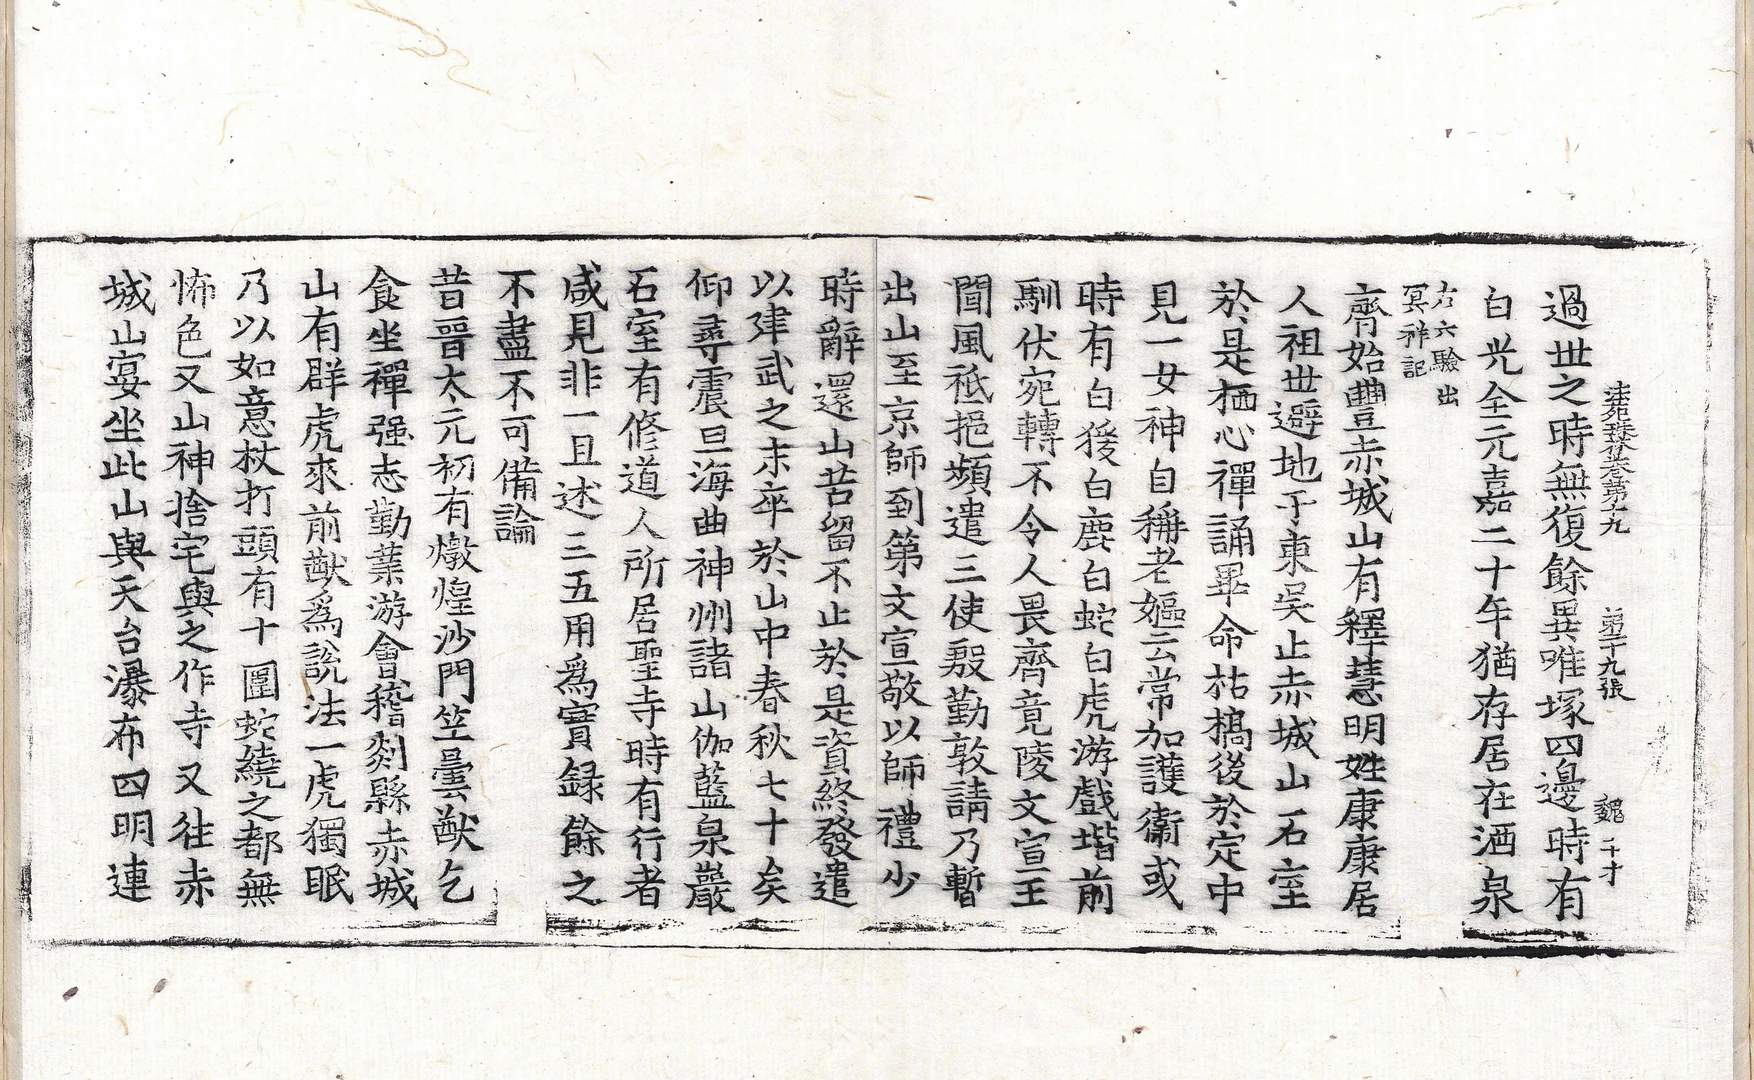 法苑珠林卷第十九 第十九張 魏 千才
過世之時無復餘異唯塚四邊時有
白光全元嘉二十年猶存居在酒泉
右六驗出
冥祥記
齊始豐赤城山有釋慧明姓康康居
人祖世避地于東吳止赤城山石室
於是栖心禪誦畢命枯槁後於定中
見一女神自稱老嫗云常加護衛或
時有白猨白鹿白蛇白虎游戲堦前
馴伏宛轉不令人畏齊竟陵文宣王
聞風祗挹頻遣三使殷勤敦請乃暫
出山至京師到第文宣敬以師禮少
時辭還山苦留不止於是資終發遣
以建武之末卒於山中春秋七十矣
仰尋震旦海曲神州諸山伽藍泉巖
石室有修道人所居聖寺時有行者
咸見非一且述三五用爲實録餘之
不盡不可備論
昔晉太元初有燉煌沙門竺曇猷乞
食坐禪强志勤業游會稽剡縣赤城
山有群虎來前猷爲說法一虎獨眠
乃以如意杖打頭有十圍蛇繞之都無
怖色又山神捨宅與之作寺又往赤
城山宴坐此山與天台瀑布四明連